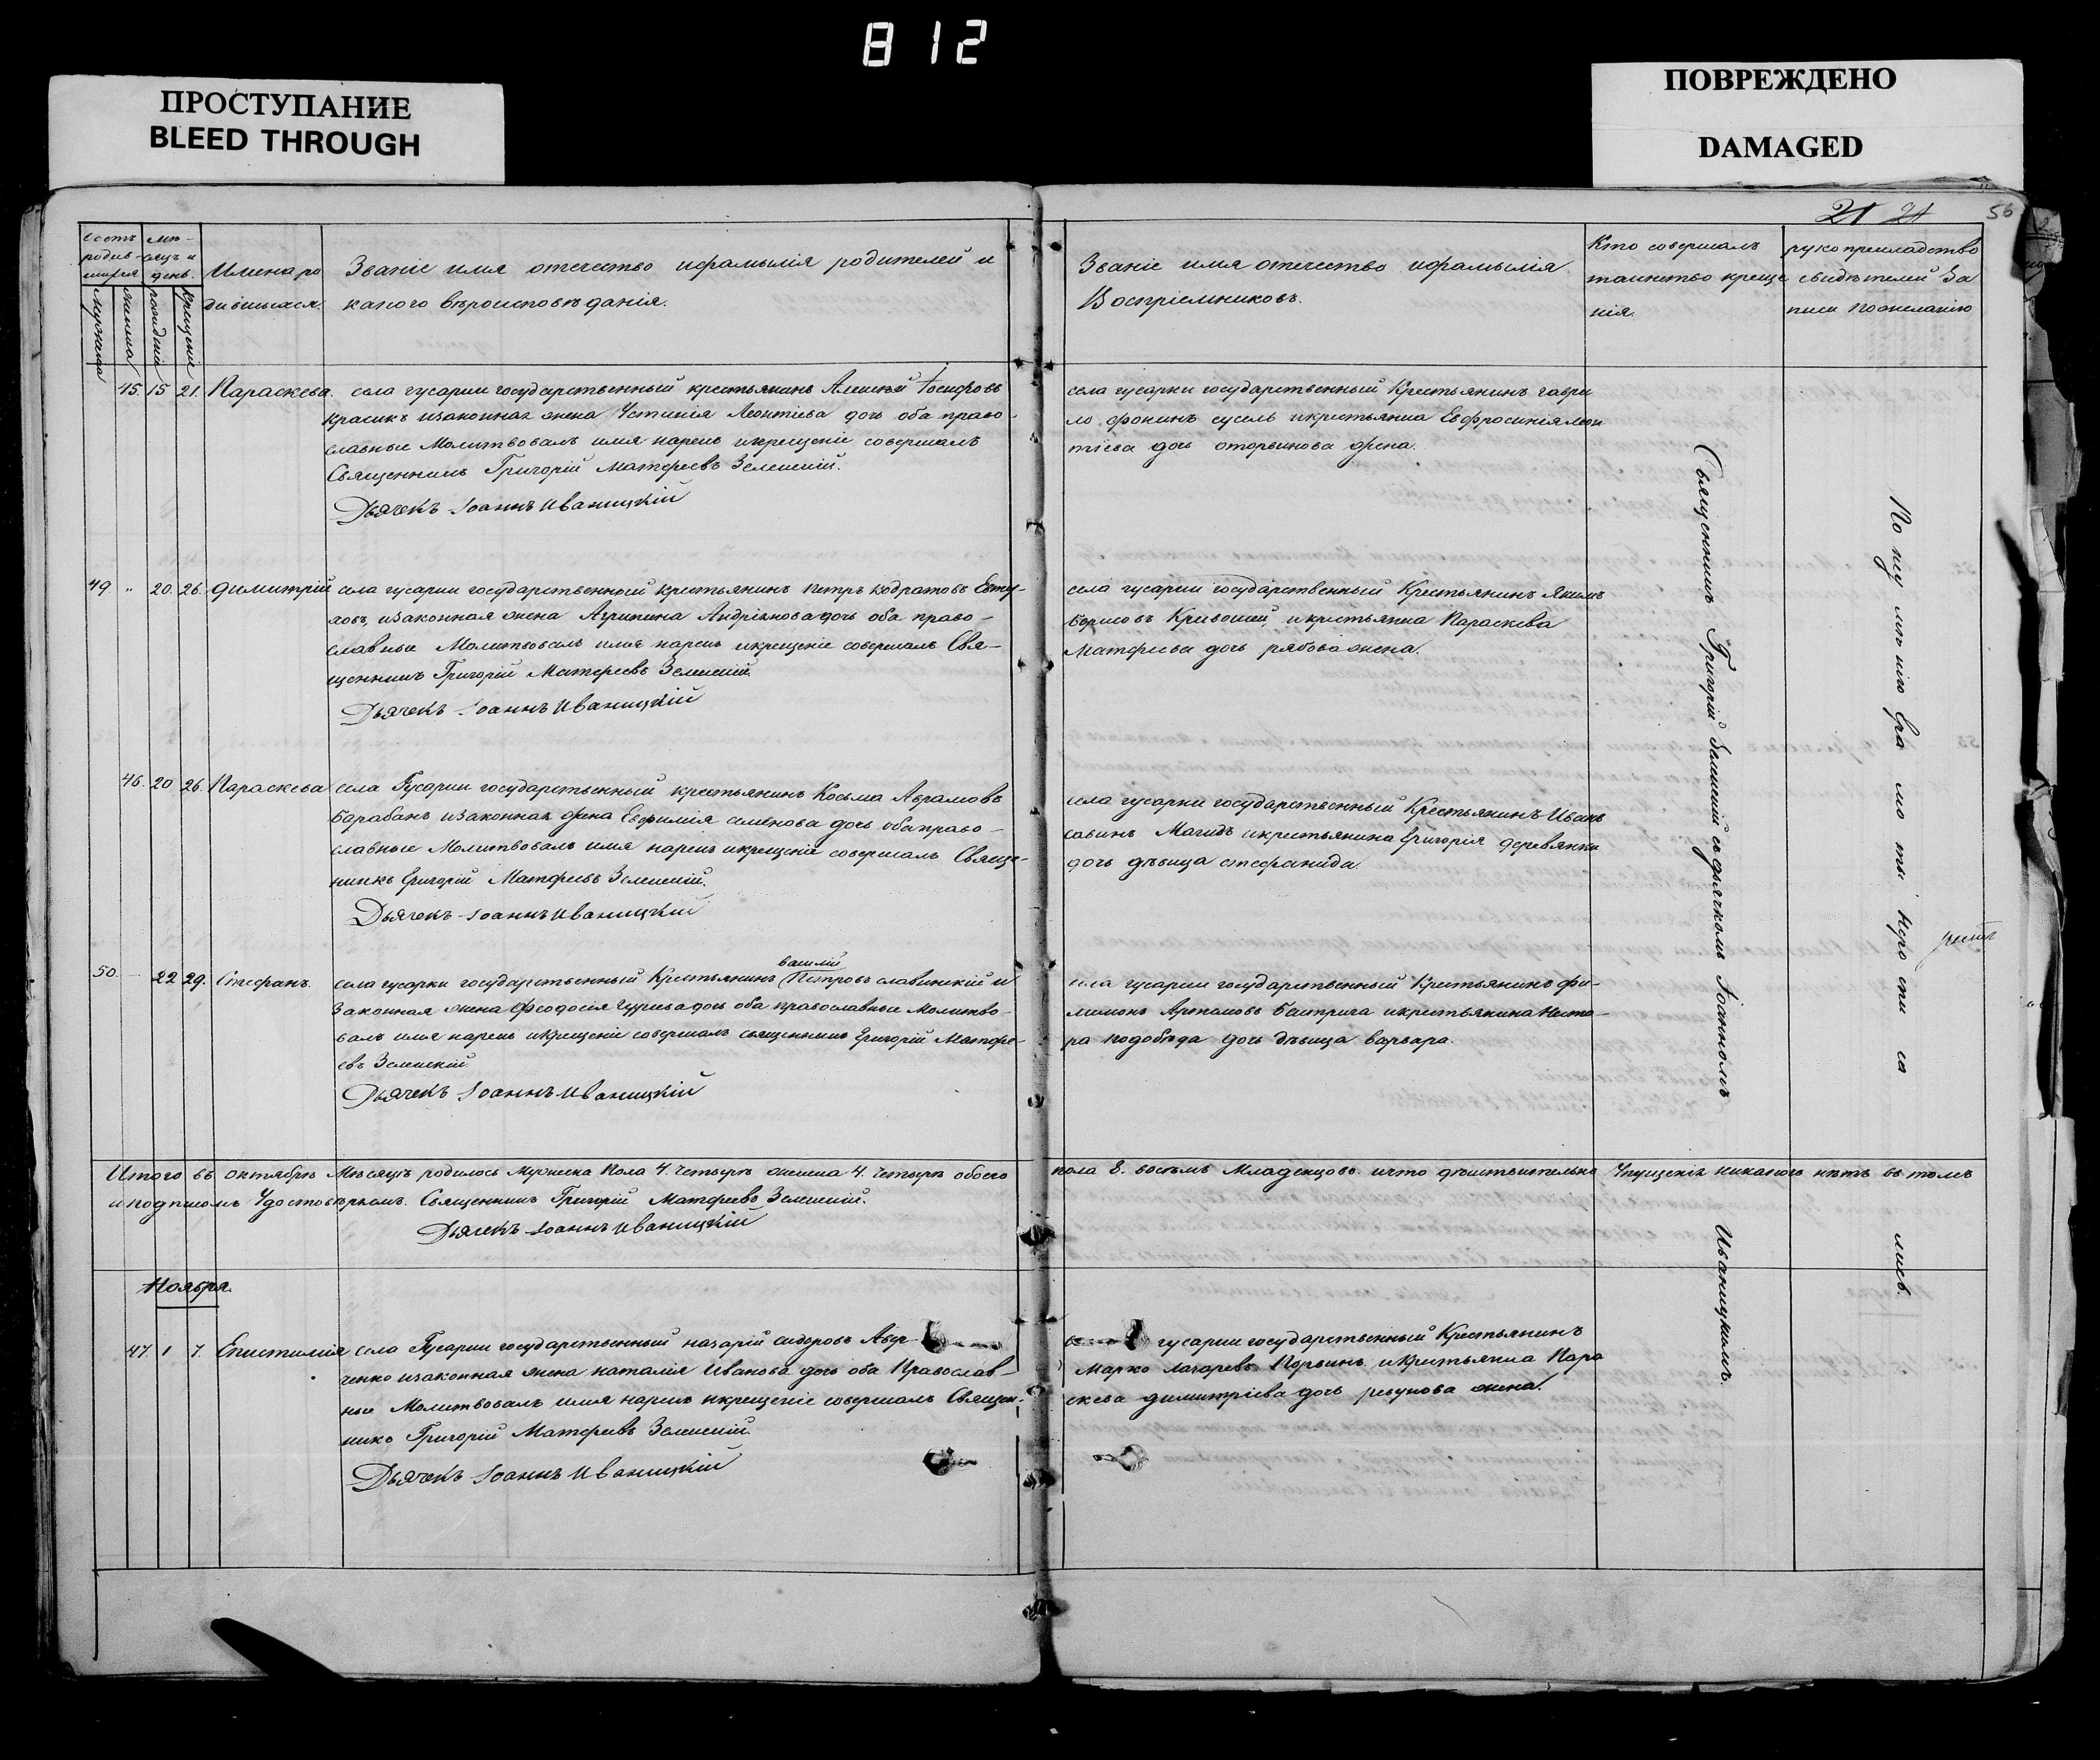 812
ПРОСТУПАНИЕ
BLEED THROUGH
ПОВРЕЖДЕНО
DAMAGED
21 21 56
Счетъ родив-шихся
мѣ-сяцъ и день.
мужеска
женска
рожденія
крещенія
Имена ро
дившихся.
Званіе имя отечество ифамылія родителей и
какого вѣроисповѣданія.
Званіе имя отечество ифамылія
Воспріемниковъ.
Кто совершалъ
таинство креще
нія.
рукоприкладство
свидѣтелей За
писи пожеланію
45. 15 21. Параскева. села гусарки государственный крестьянинъ Алексѣй Іосифовъ
Красикъ изаконная жена Устинія Леонтіева дочь оба право-
славные Молитвовалъ имя нарекъ икрещеніе совершалъ
Священникъ Григорій Матфеевъ Зеленскій.
Дьячекъ Іоаннъ Иваницкій
села гусарки государственный Крестьянинъ гаври
ло фокинъ сусель икрестьянка Евфросинія леон
тіева дочь жена.
49 " 20. 26. Димитрій села гусарки государственный крестьянинъ Петръ кодратовъ Евту-
ховъ, изаконная жена Агрипина Андріянова дочь оба право-
славные Молитвовалъ имя нарекъ икрещеніе совершалъ Свя-
щенникъ Григорій Матфеевъ Зеленскій.
Дьячекъ Іоаннъ Иваницкій
села гусарки государственный Крестьянинъ Якимъ
Борисовъ Кривошей, икрестьянка Параскева
Матфіева дочь рябова жена.
46. 20 26. Параскева села Гусарки государственный крестьянинъ Косьма Аврамовъ
Барабанъ изаконная жена Евфимія семенова дочь оба право-
славные Молитвовалъ имя нарекъ икрещеніе совершалъ Свяще-
нникъ Григорій Матфеевъ Зеленскій.
Дьячекъ Іоаннъ Иваницкій
села гусарки государственный Крестьянинъ Иванъ
савинъ Магидъ икрестьянина Григорія деревянки
дочь дѣвица стефанида.
50. 22 29. Стефанъ. села гусарки государственный Крестьянинъ василій Петровъ славинскій и
Законная жена Феодосія Гуріева дочь оба православные Молитво-
валъ имя нарекъ икрещеніе совершалъ священникъ Григорій Матфе-
евъ Зеленскій.
Дьячекъ Іоаннъ Иваницкій
села гусарки государственный Крестьянинъ фи-
лимонъ Артамовъ Бастрига икрестьянина Несто-
ра подобѣда дочь дѣвица варвара.
Священникъ Григорій Зеленскій съ дьячкомъ Іоанномъ Иваницкимъ.
По неу мѣ нію гра мо ты него спи са лись.
Итого въ октябрѣ Мѣсяцѣ родилось Мужеска Пола 4. четыре женска 4. четыре обоего пола 8. восемь Младенцовъ. ичто дѣйствительно Упущенія никакого нѣтъ въ томъ
и подписомъ Удостовѣряемъ. Священникъ Григорій Матфеевъ Зеленскій.
Дьячекъ Іоаннъ Иваницкій
Ноября.
47. 1 7. Епистимія села Гусарки государственный назарій сидоровъ
ченко изаконная жена наталія Иванова дочь оба Православ-
ные Молитвовалъ имя нарекъ икрещеніе совершалъ Священ-
никъ Григорій Матфеевъ Зеленскій.
Дьячекъ Іоаннъ Иваницкій
гусарки государственный Крестьянинъ
Марко лазаревъ Порвинъ. икрестьянка Пара
скева димитріева дочь резунова жена.